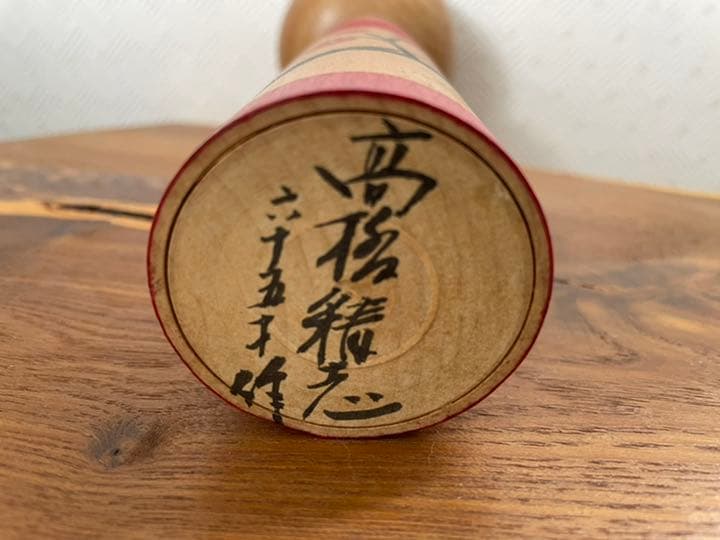 高橋精志
六十五才作